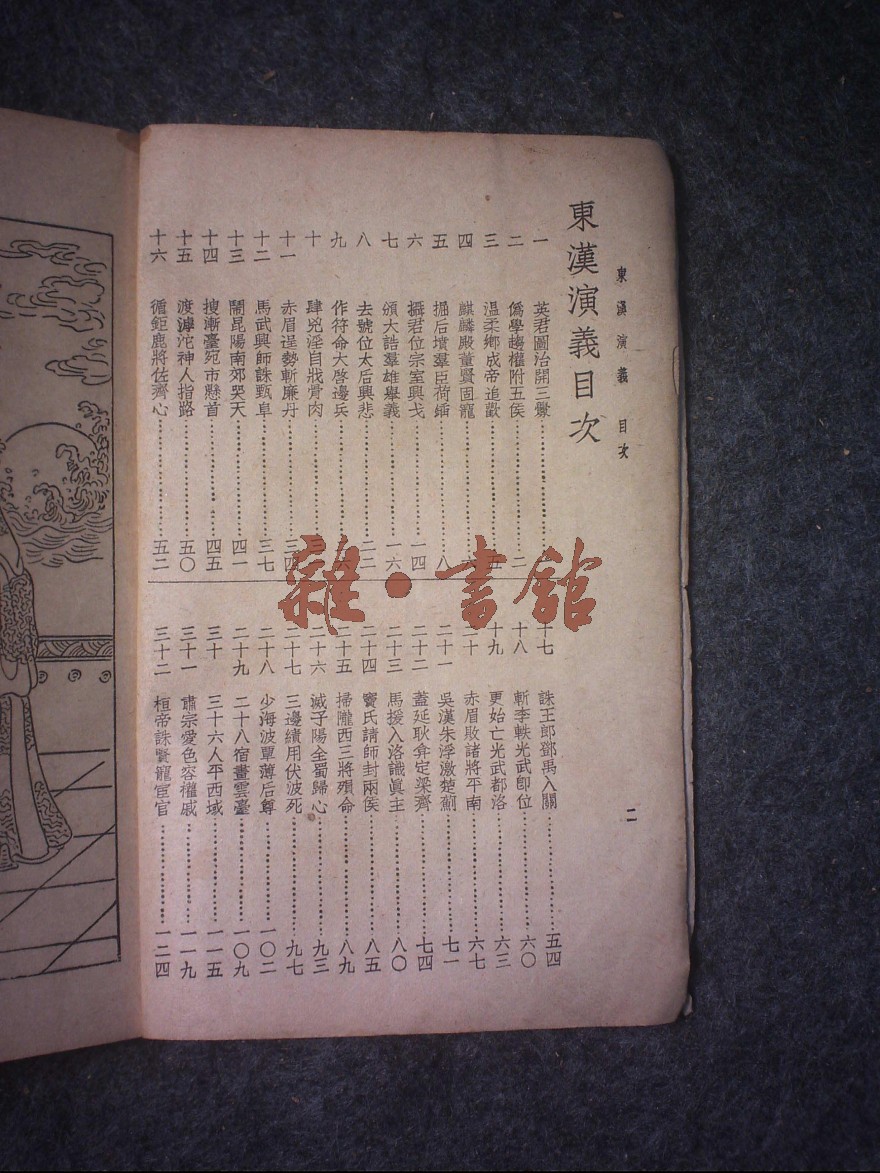 東漢演義 目次 二
東漢演義目次
一 英君圖治開三釁
二 僞學趨權附五侯 二
三 溫柔鄉成帝追歡 五
四 麒麟殿董賢固寵
五 掘后墳羣臣荷鍤 八
六 攝君位宗室興戈 一四
七 頒大誥羣雄舉義 一六
八 去號位太后興悲 二二
九 作符命大啓邊兵
十 肆兇淫自戕骨肉
十一 赤眉逞勢斬廉丹 三四
十二 馬武興師誅甄阜 三七
十三 鬧昆陽南郊哭天 四一
十四 搜漸臺宛市懸首 四五
十五 渡滹沱神人指路 五〇
十六 循鉅鹿將佐齊心 五二
十七 誅王郎鄧禹入關 五四
十八 斬李軼光武卽位 六〇
十九 更始亡光武都洛 六三
二十 赤眉敗諸將平南 六七
二十一 吳漢朱浮激楚薊 七一
二十二 蓋延耿弇定梁齊 七四
二十三 馬援入洛識眞主 八〇
二十四 竇氏請師封兩侯 八五
二十五 掃隴西三將殞命 八九
二十六 滅子陽全蜀歸心 九三
二十七 三邊績用伏波死 九七
二十八 少海波覃薄后尊 一〇二
二十九 二十八宿畫雲臺 一〇九
三十 三十六人平西域 一一五
三十一 肅宗愛色容權戚 一一九
三十二 桓帝誅賢寵宦官 一二四
雜·書館